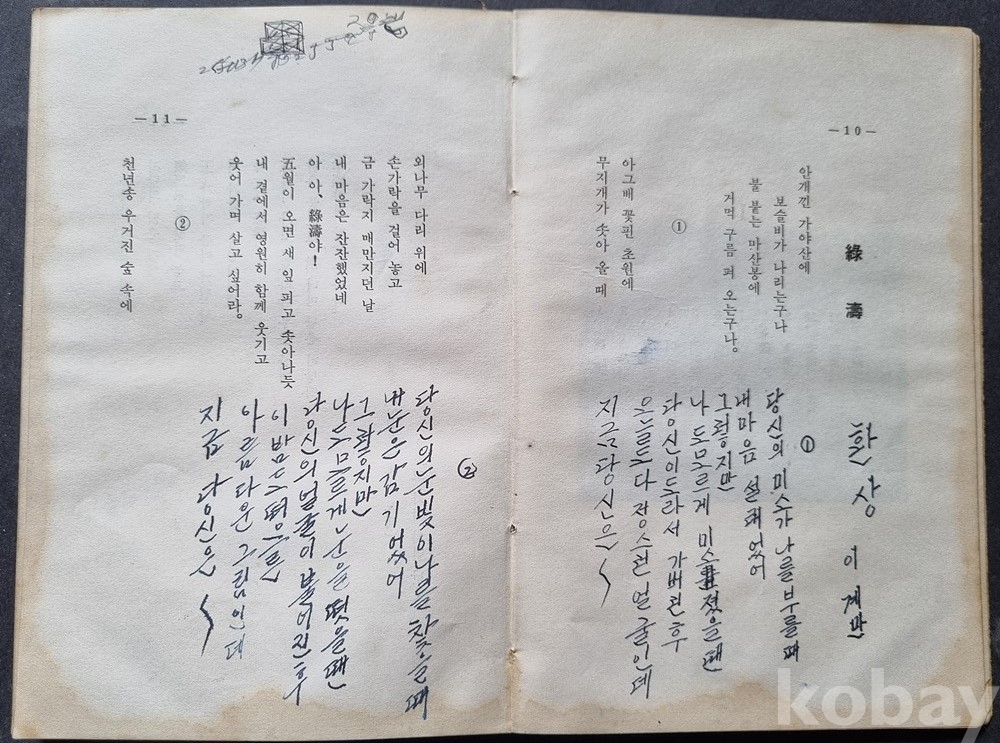 —10—
綠濤
안개낀 가야산에
보슬비가 나리는구나
불 붙는 마산봉에
거먹 구름 펴 오는구나.
①
아그배 꽃핀 초원에
무지개가 솟아 올 때
환상 이계만
①
당신의 미소가 나를 부를때
내마음 설래 었어
그렇지만
나도모르게 미소졌을땐
당신이 도라서 가버린후
다정스런 얼굴인데
지금당신은
—11—
외나무 다리 위에
손가락을 걸어 놓고
금 가락지 매만지던 날
내 마음은 잔잔했었네
아 아, 綠濤야!
五월이 오면 새 잎 피고 솟아나듯
내 곁에서 영원히 함께 웃기고
웃어 가며 살고 싶어라.
②
천년송 우거진 숲 속에
②
당신의눈빛이나를 찾을때
내눈은 감기 었어
그렇지만
나도모르게눈을 떳을땐
당신의얼굴이 붉어진후
이밤도 떠오른
아름다운 그림인데
지금 당신은
kobay